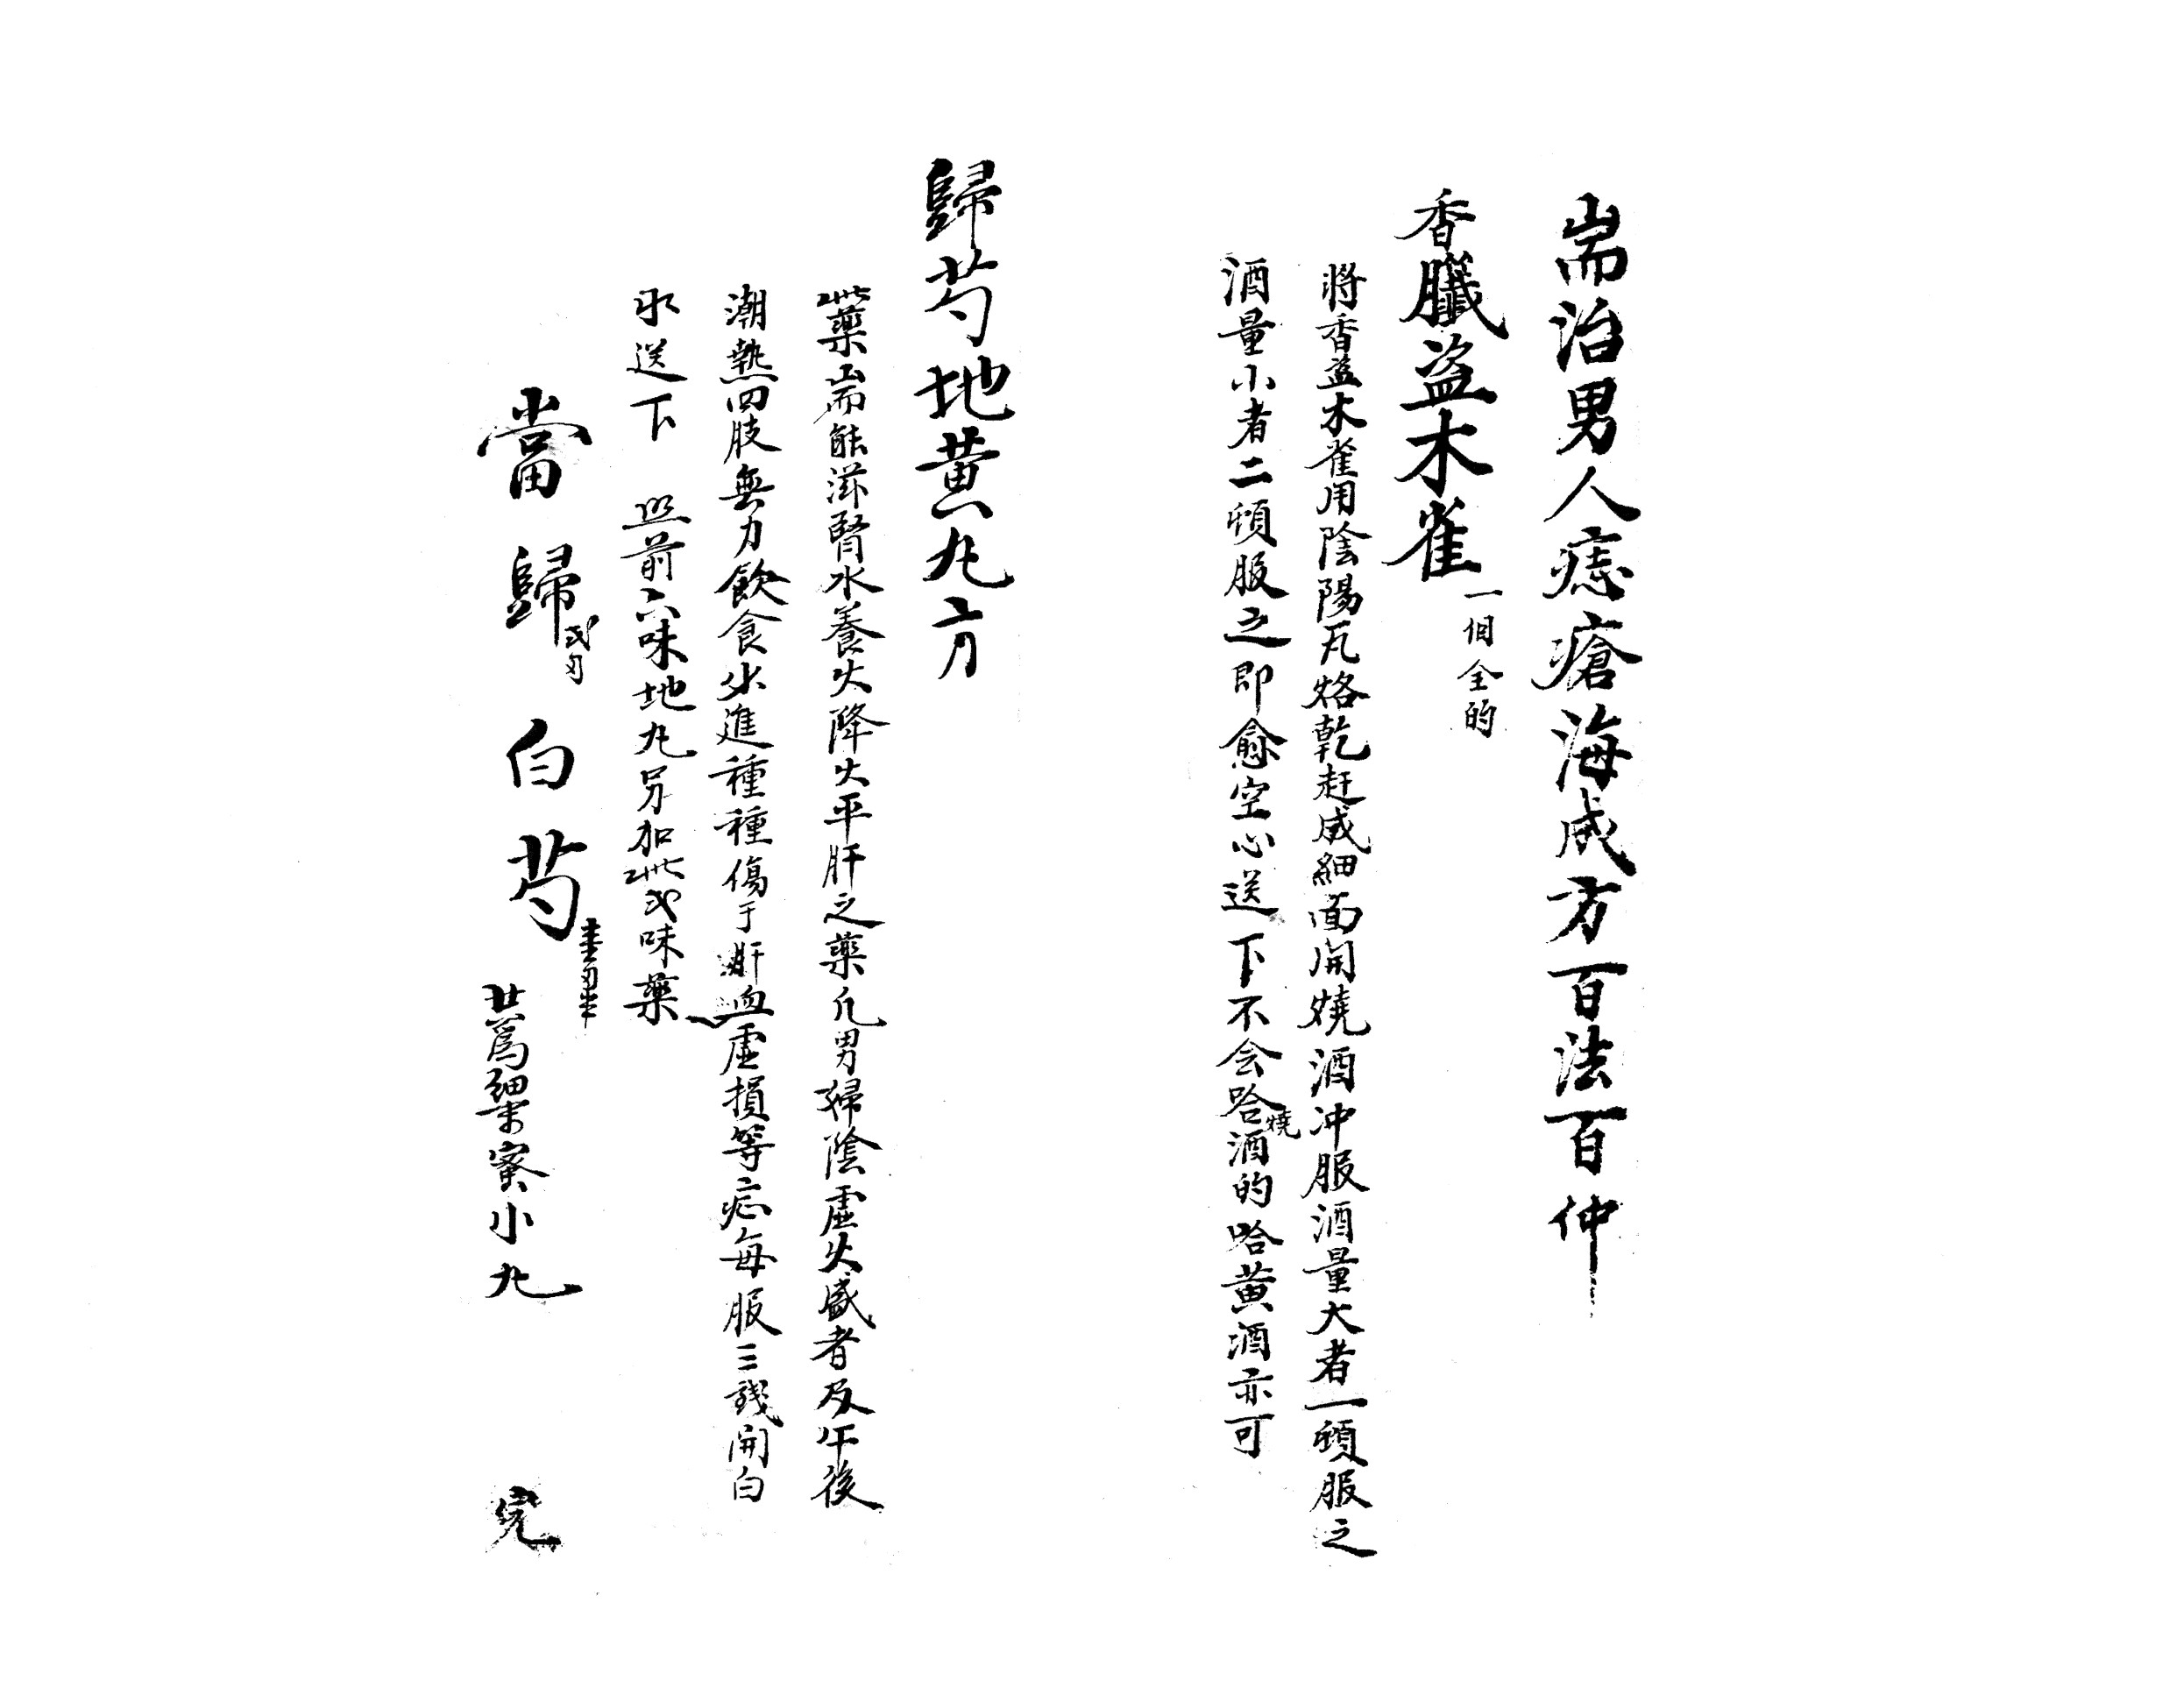 耑治男人痣瘡海咸方百法百仲
香臟盗木雀一個全的
將香盗木雀用陰陽瓦烙乾赶咸細面開燒酒冲服酒量大者一頓服之
酒量小者二頓服之即愈空心送下不会哈燒酒的哈黄酒亦可
歸芍地黄丸方
此藥耑能滋腎水養火降火平肝之藥凡男婦陰虛火盛者及午後
潮熱四肢無力飲食少進種種傷于肝血虛損等症每服三錢開白
水送下 照前六味地丸另加此弍味藥
當歸 白芍
共為細末蜜小丸 完